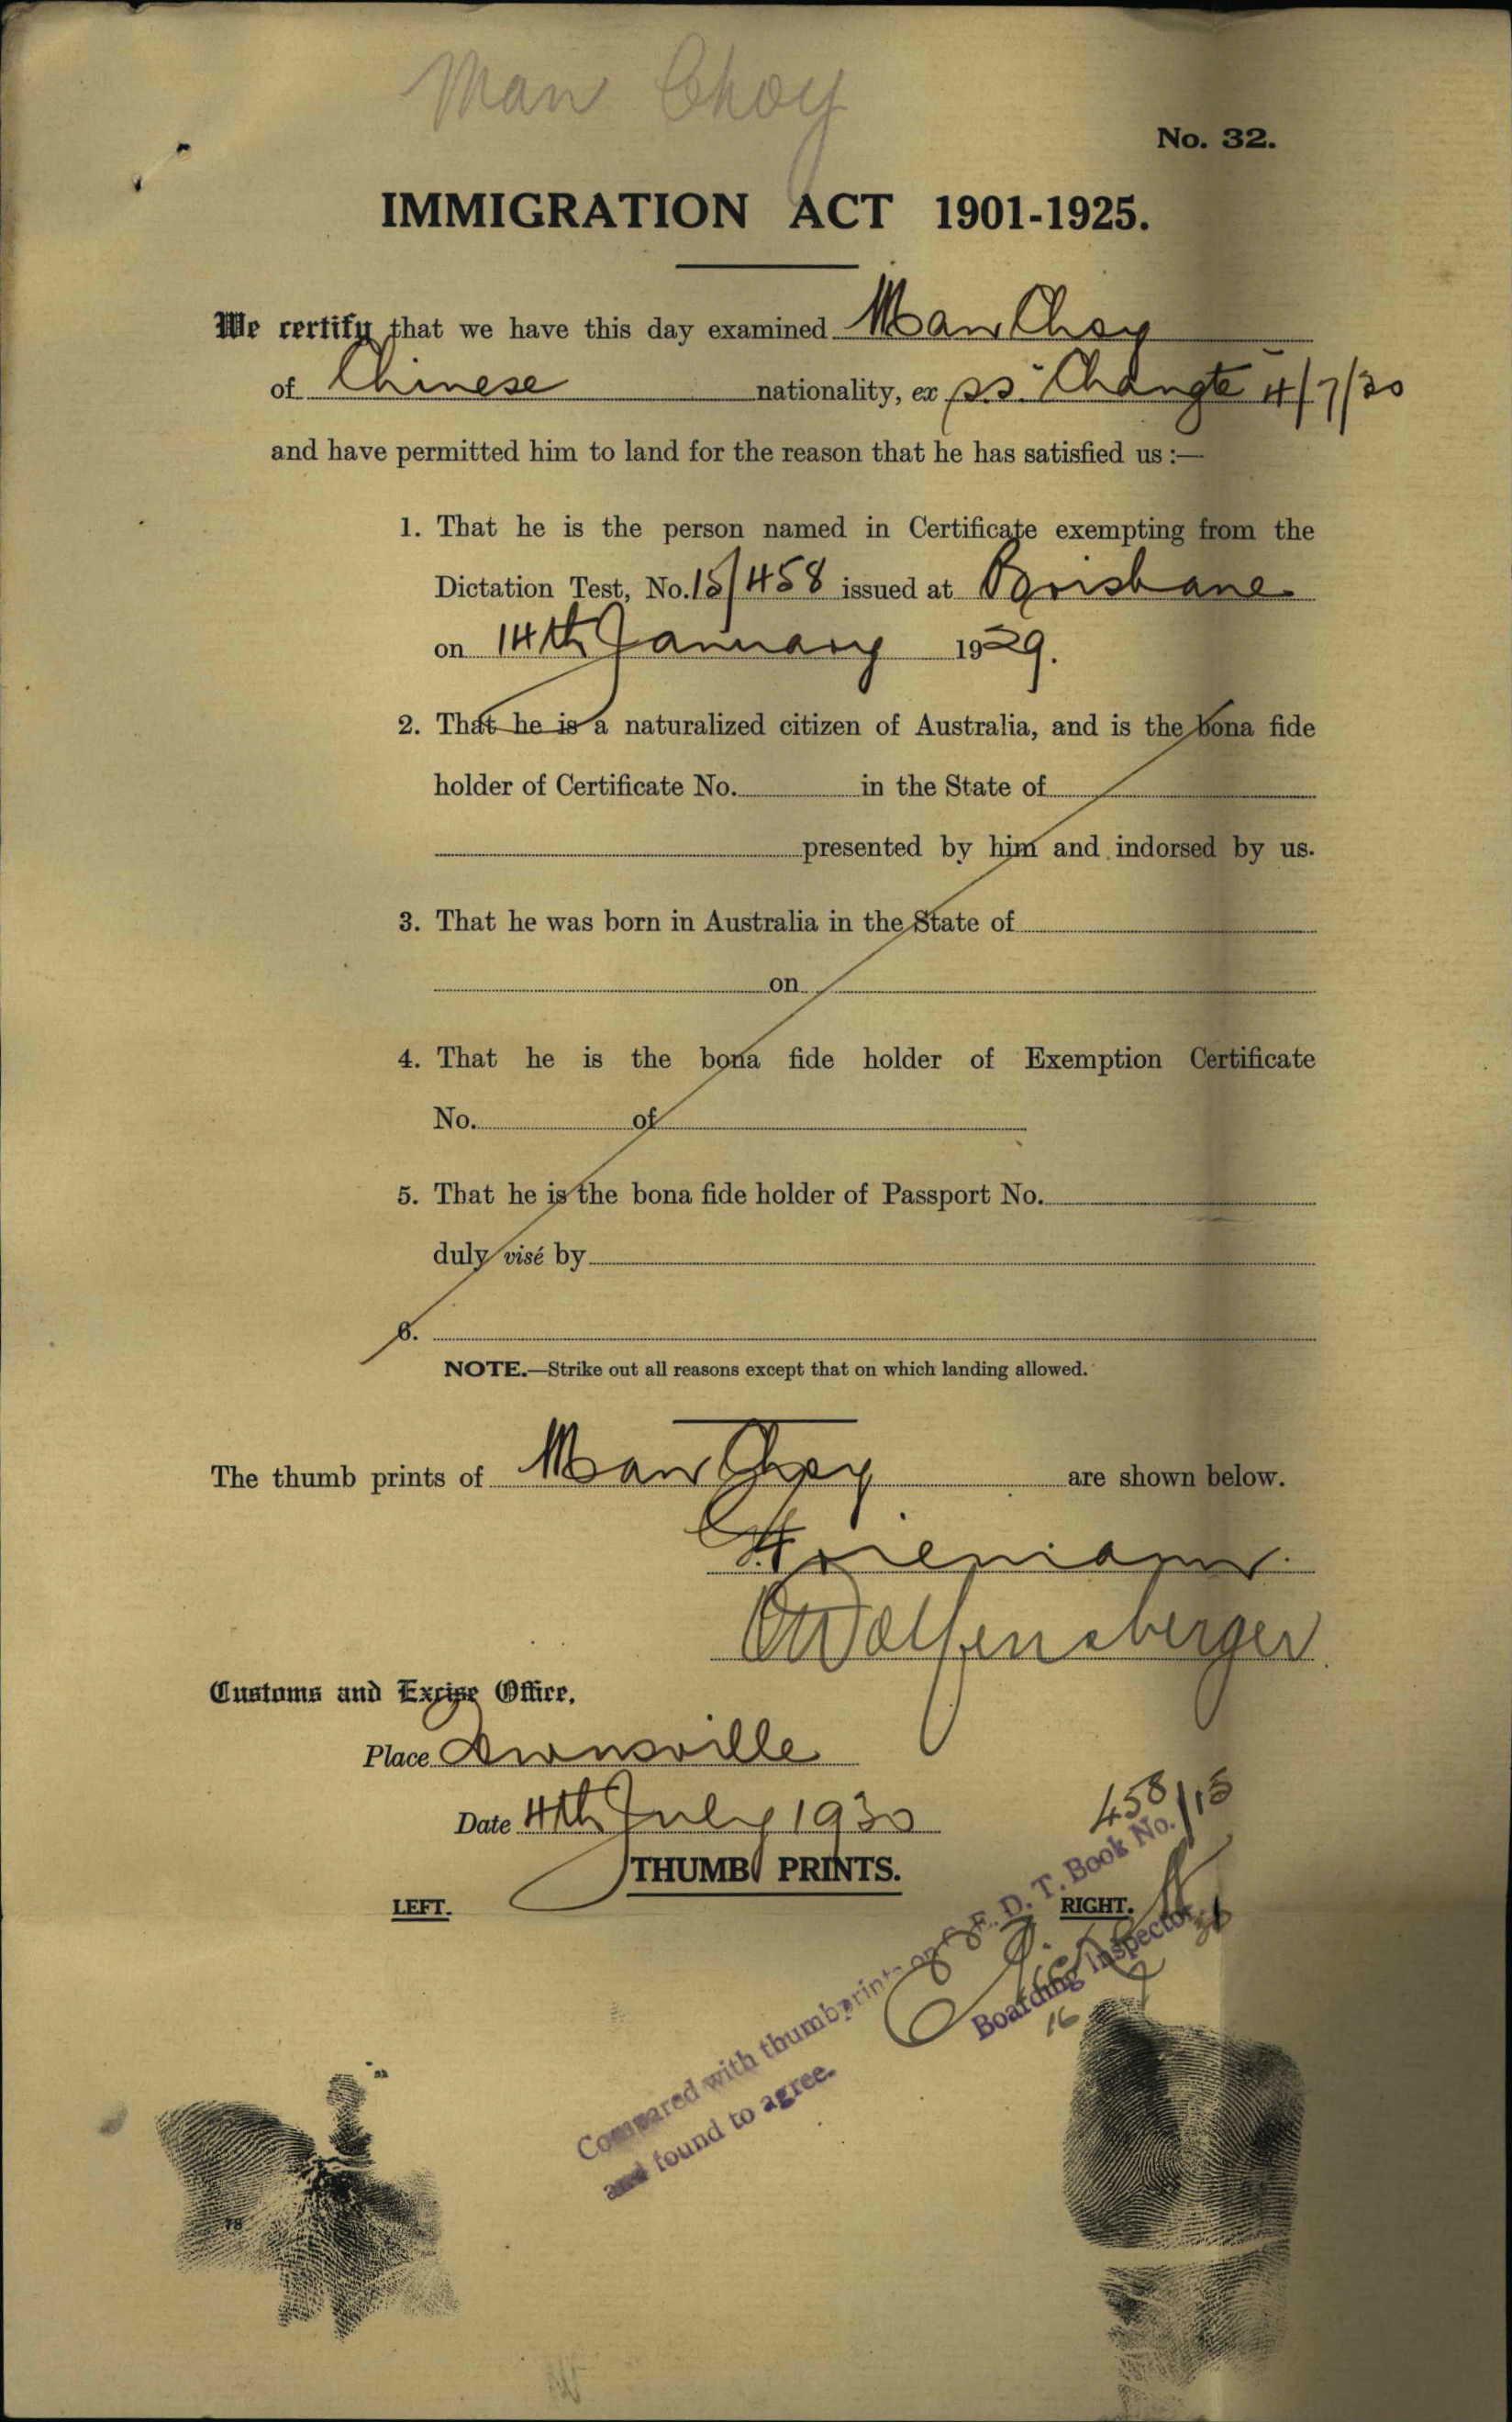 Man Choy
No. 32.
IMMIGRATION ACT 1901-1925.
We certify that we have this day examined Man Choy
of Chinese nationality, ex s.s. "Changte" 4/7/30
and have permitted him to land for the reason that he has satisfied us :—
1. That he is the person named in Certificate exempting from the
Dictation Test, No. 15/458 issued at Brisbane
on 14th January 1929.
2. That he is a naturalized citizen of Australia, and is the bona fide
holder of Certificate No. in the State of
presented by him and indorsed by us.
3. That he was born in Australia in the State of
on
4. That he is the bona fide holder of Exemption Certificate
No. of
5. That he is the bona fide holder of Passport No.
duly visé by
6.
NOTE.—Strike out all reasons except that on which landing allowed.
The thumb prints of Man Choy are shown below.
Wolfensberger
Customs and Excise Office.
Place Townsville
Date 4th July 1930
458/15
THUMB PRINTS.
LEFT.
RIGHT.
Compared with thumbprints on C.E.D.T. Book No.
and found to agree.
Boarding Inspector
16